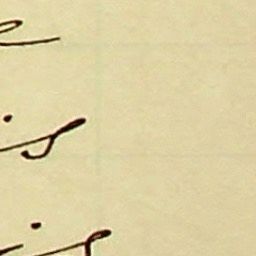 e
is
is